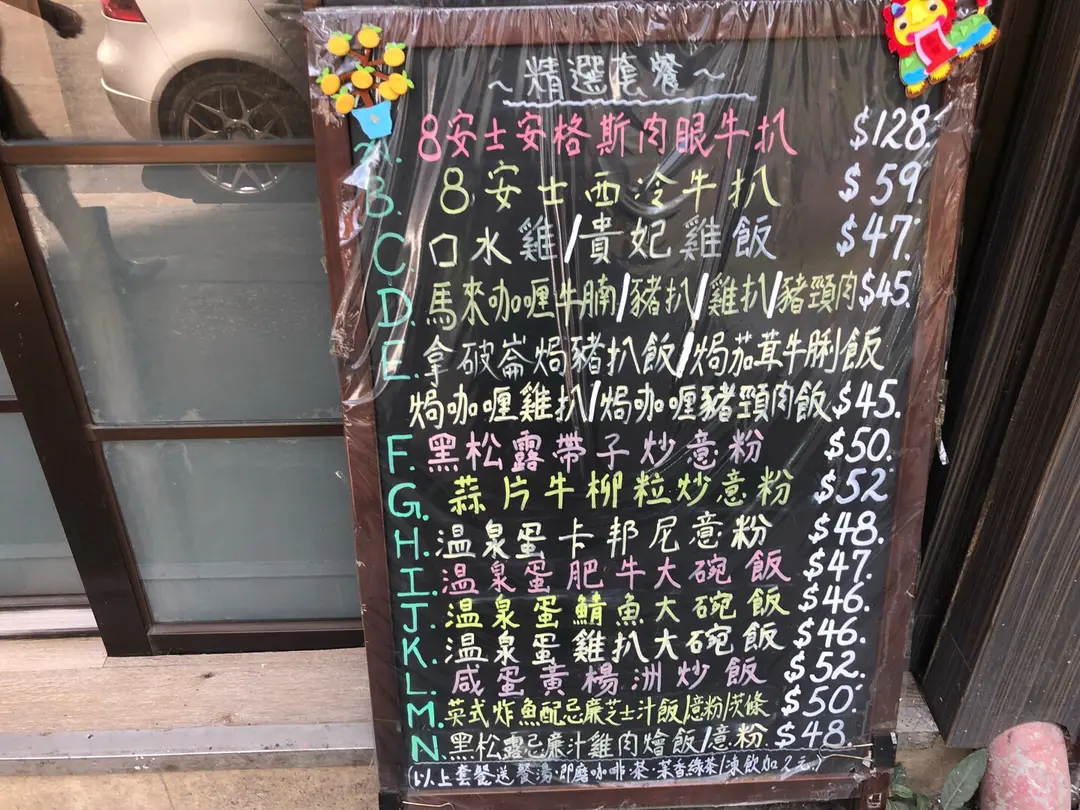 ~精選套餐~
A. 8安士安格斯肉眼牛扒 $128.
B. 8安士西冷牛扒 $59.
C. 口水雞/貴妃雞飯 $47.
D. 馬來咖喱牛腩/豬扒/雞扒/豬頸肉 $45.
E. 拿破崙焗豬扒飯/焗茄茸牛脷飯
焗咖喱雞扒/焗咖喱豬頸肉飯 $45.
F. 黑松露帶子炒意粉 $50.
G. 蒜片牛柳粒炒意粉 $52
H. 温泉蛋卡邦尼意粉 $48.
I. 温泉蛋肥牛大碗飯 $47.
J. 温泉蛋鯖魚大碗飯 $46.
K. 温泉蛋雞扒大碗飯 $46.
L. 咸蛋黃楊洲炒飯 $52.
M. 英式炸魚配忌廉芝士汁飯/意粉/茨條 $50.
N. 黑松露忌廉汁雞肉燴飯/意粉 $48.
(以上套餐送餐湯·即磨咖啡·茶·茉香綠茶/凍飲加2元.)